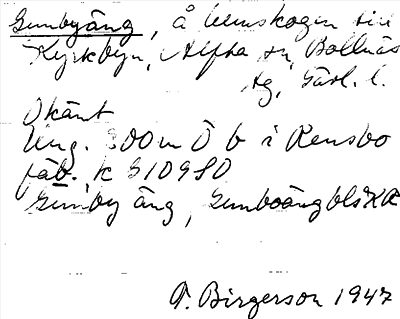 Gumbyäng, å hemskogen till
Kyrkbyn, Alfta sn, Bollnäs
tg, Gävl. l.
Okänt
Ung. 300 m Ö b i Rensbo
fäb. k G10980
Gumbyäng, Gumboäng
T. Birgerson 1947